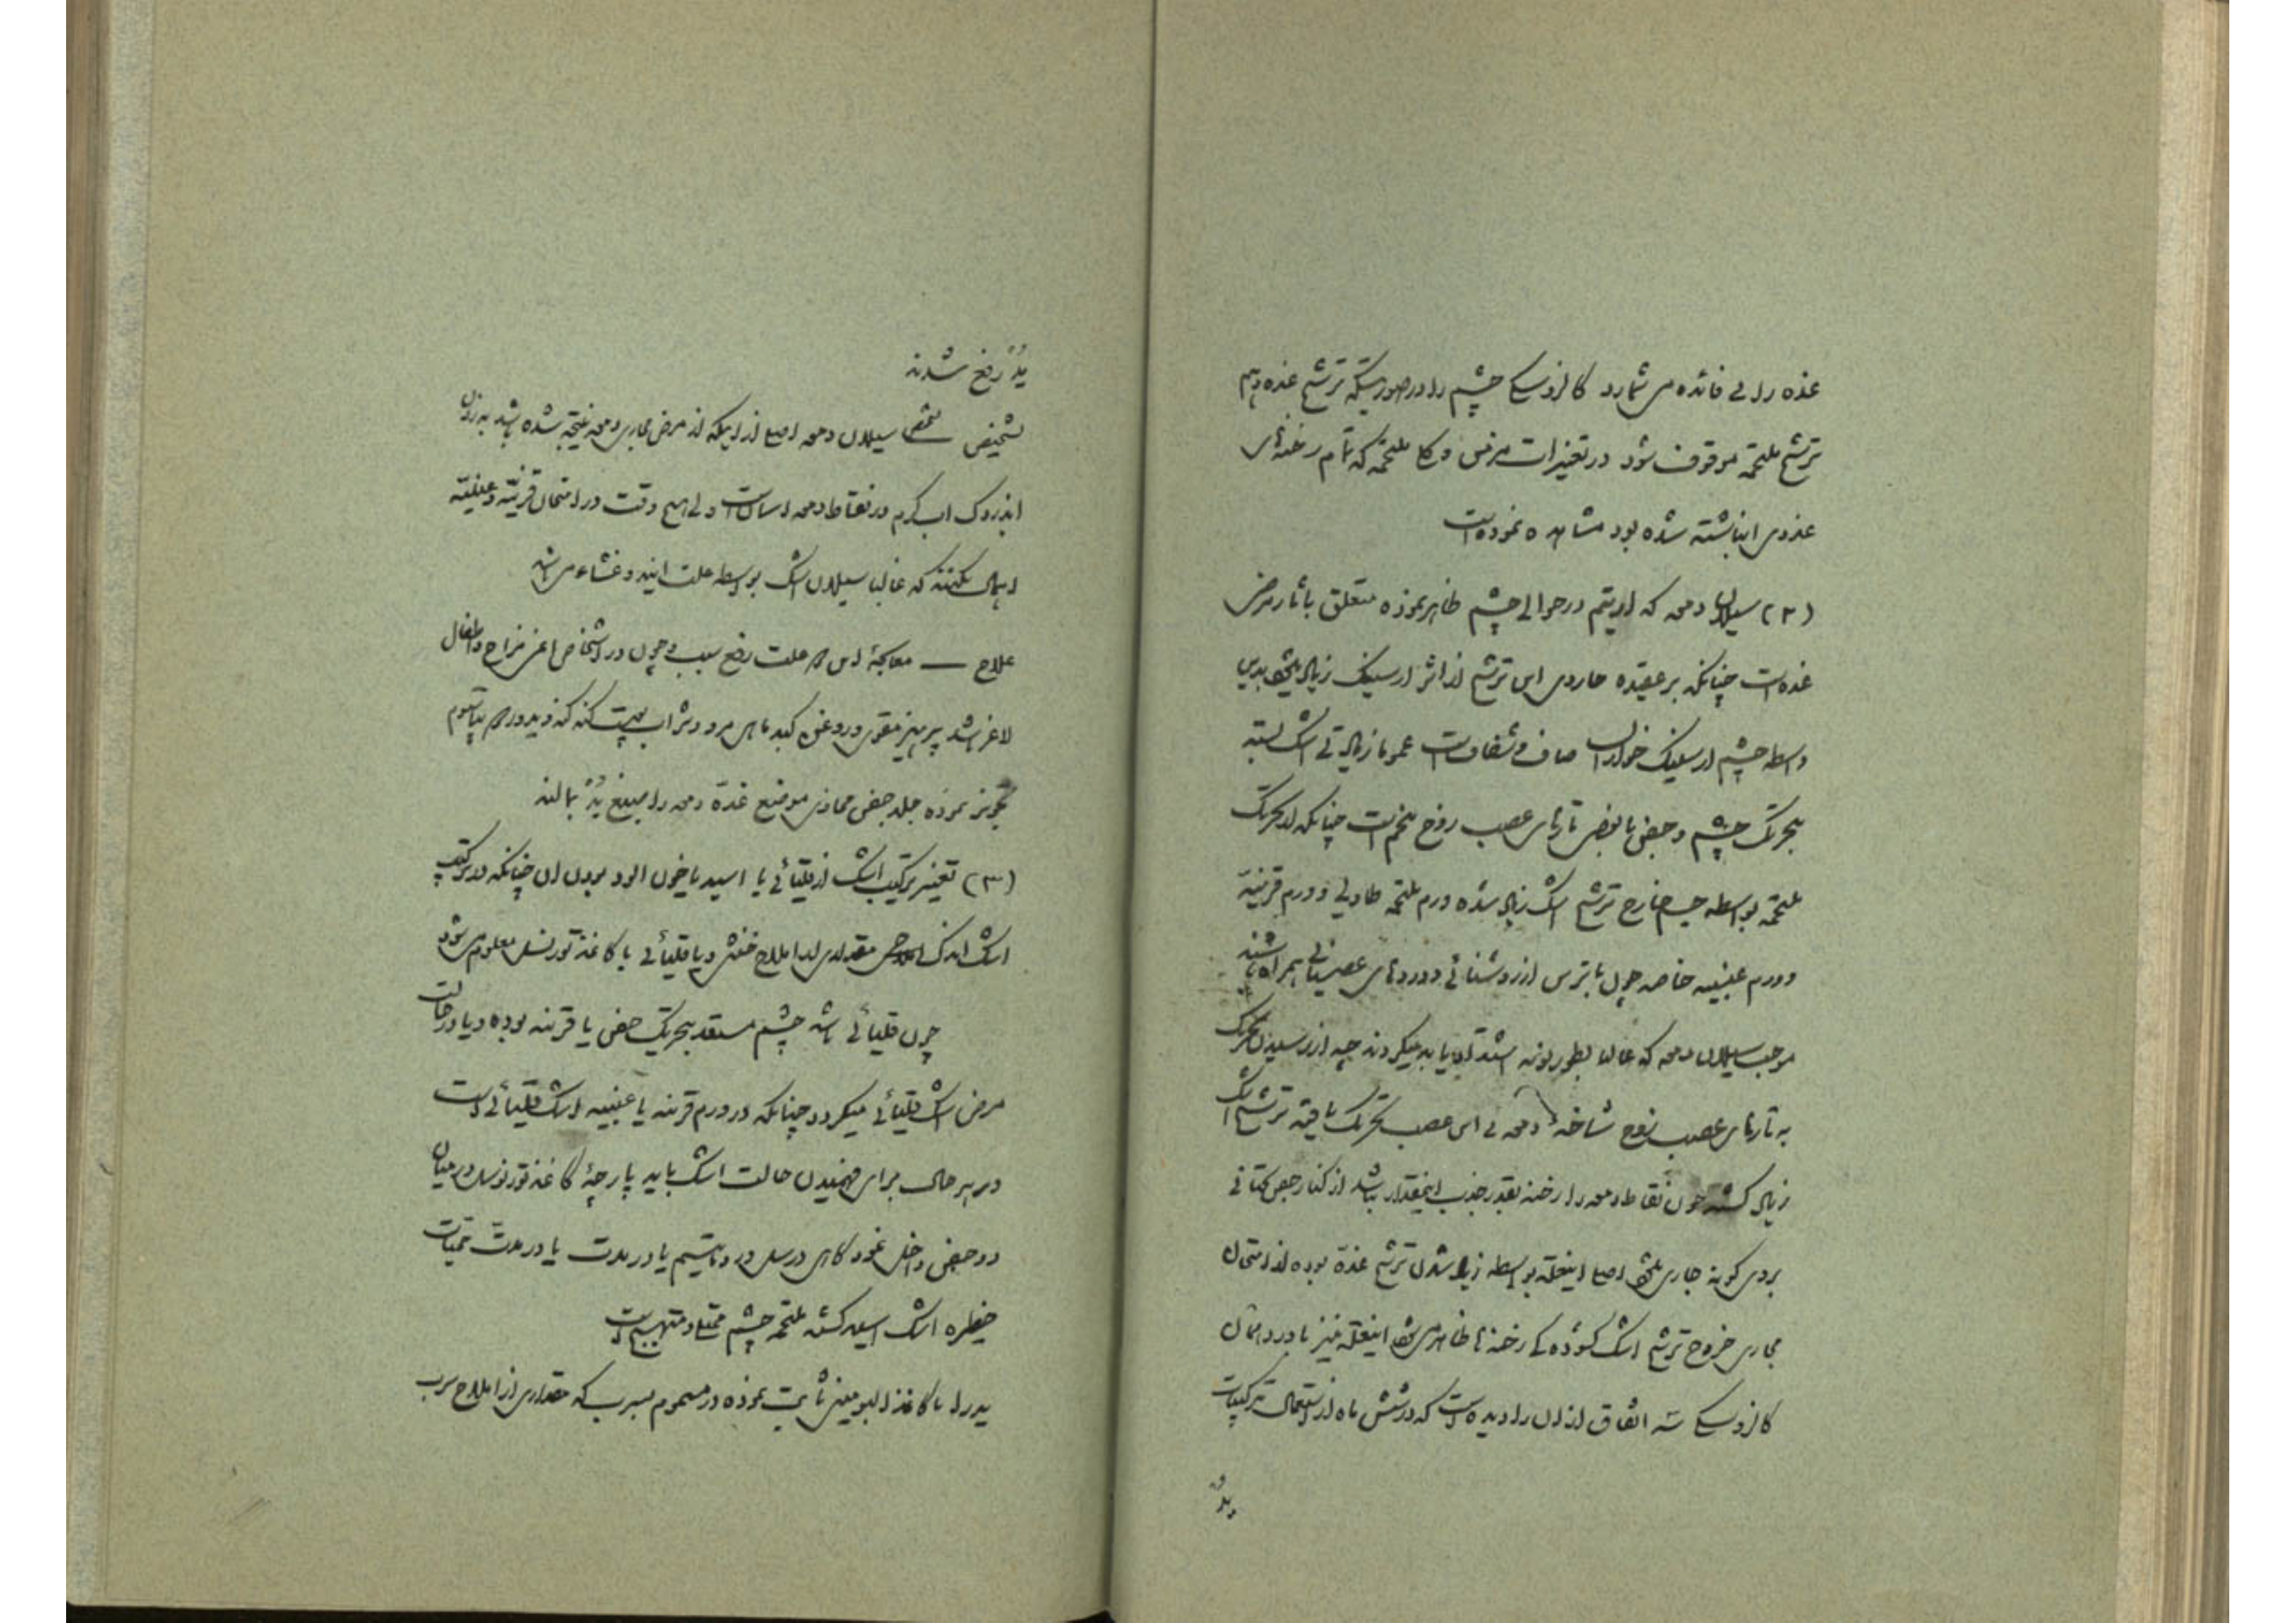 غده را بی فائده می شمارد کالزوسکی چشم را در صورتیکه ترشح غده و هم
ترشح ملتحمه موقوف شود در تغییرات مرض ملتحمه که تمام رخنه های
غدوی انباشته شده بود مشاهده نموده است
(۲) سیلان دمعه که اریتم در حوالی چشم ظاهر نموده متعلق باثار مرض
غده است چنانکه بر عقیده هاردی این ترشح از اثر ارسنیک زیاد میشود بدین
واسطه چشم ارسنیک خواران صاف و شفاف است عموما زیادتی اشک بسته
بتحریک چشم و جفن یا بعضی تارهای عصب زوج پنجم است چنانکه از تحریک
ملتحمه بواسطه جسم خارج ترشح اشک زیاد شده ورم ملتحمه حاد ورم قرنیه
و ورم عنبیه خاصه چون با ترس از روشنائی و دردهای عصبانی همراه باشند
موجب سیلان دمعه که غالبا بطور نوبه اشتداد یابد میگردند چه از رسیدن تحریک
به تارهای عصب زوج شاخه دمعه ئی این عصب تحریک یافته ترشح اشک
زیاد گشته چون نقاط دمعه را رخنه بقدر جذب اینمقدار نباشد از کنار جفن تحتانی
بروی گونه جاری میشود اصلا اینعلة بواسطه زیاد شدن ترشح غدّه بوده از امتحان
مجاری خروج ترشح اشک گشوده گی رخنه ها ظاهر میشود اینعلة نیز نادر و امثال
کالزوسکی سه اتفاق از ان را دیده است که در شش ماه از استعمال ترکیبات
یُدُرْ رفع شدند
تشخیص — تشخیص سیلان دمعه اصلا از اینکه از مرض مجاری دمعه نتیجه شده باشد به زدن
آب گرم در نقاط دمعه اسان است ولی هیچ وقت در امتحان قرنیّه و عنبیّه
اهمال نکنند که غالبا سیلان اشک بواسطه علت ایندو غشاء می باشد
علاج — معالجهٔ این علت رفع سبب و چون در اشخاص مزاج و اطفال
لاغر باشد پرهیز مقوی و روغن کبد ماهی مرو و شراب پتاسیوم
تجویز نموده جلد جفن محاذی موضع غدّه دمعه را یُدْ بمالند
(۳) تغییر ترکیب اشک از قلیائی یا اسید یا خون الود بودن ان چنانکه در ترکیب
اشک اندکی مقداری از املاح خنثی و یا قلیائی با کاغذ تورنسل معلوم میشود
چون قلیائی باشد چشم مستعد بتحریک جفن یا قرنیه بوده و یا در حالت
مرض اشک قلیائی میگردد چنانکه در ورم قرنیه یا عنبیه اشک قلیائی است
در هر حال برای فهمیدن حالت اشک باید پارچهٔ کاغذ تورنسل در میان
دو جفن داخل نمود گاهی در سل در روماتیسم یا در مدت یا در مدت حمیات
خطره اشک اسید گشته ملتحمه چشم ممتلی و متهیج است
یدرا با کاغذ البومین ثابت نموده در مسموم بسرب که مقداری از املاح سرب